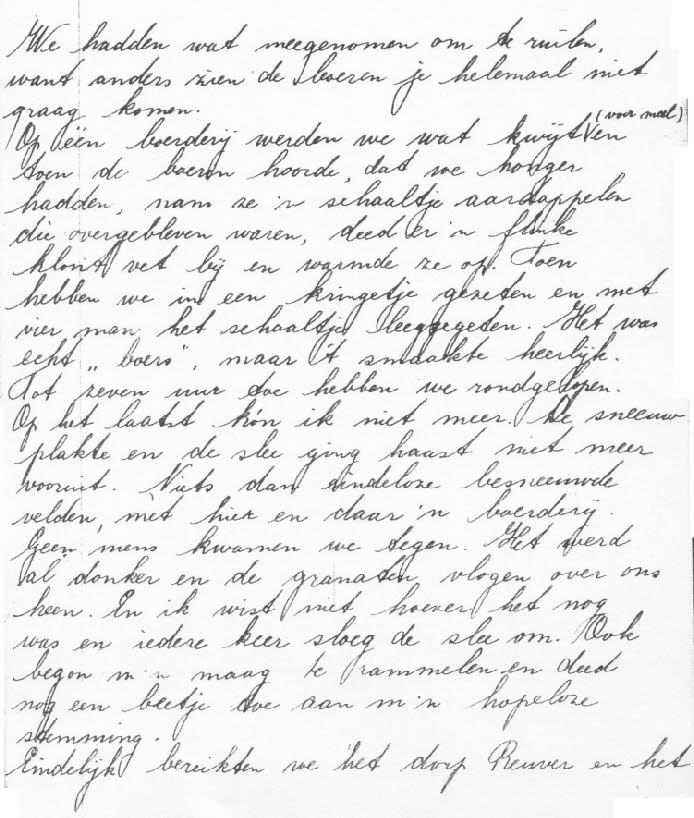 We hadden wat meegenomen om te ruilen,
want anders zien de boeren je helemaal niet
graag komen.
Op één boerderij werden we wat kwijt (voor meel) en
toen de boerin hoorde, dat we honger
hadden, nam ze 'n schaaltje aardappelen
die overgebleven waren, deed er 'n flinke
klont vet bij en warmde ze op. Toen
hebben we in een kringetje gezeten en met
vier man het schaaltje leeggegeten. Het was
echt „boers", maar 't smaakte heerlijk.
Tot zeven uur toe hebben we rondgelopen.
Op het laatst kón ik niet meer. De sneeuw
plakte en de slee ging haast niet meer
vooruit. Niets dan eindeloze besneeuwde
velden, met hier en daar 'n boerderij.
Geen mens kwamen we tegen. Het werd
al donker en de granaten vlogen over ons
heen. En ik wist niet hoever het nog
was en iedere keer sloeg de slee om. Ook
begon m'n maag te rammelen en deed
nog een beetje toe aan m'n hopeloze
stemming.
Eindelijk bereikten we het dorp Reuver en het